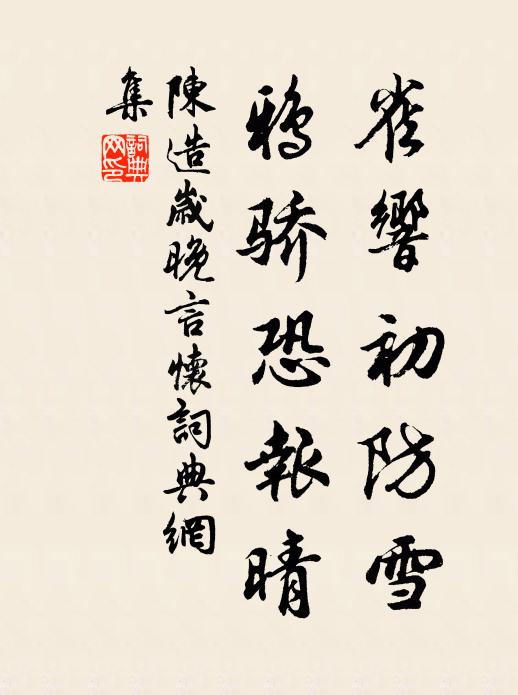 雀響初防雪
鴉骄恐報晴
陳造歲晚言懷詞典網
集
詞典
网印